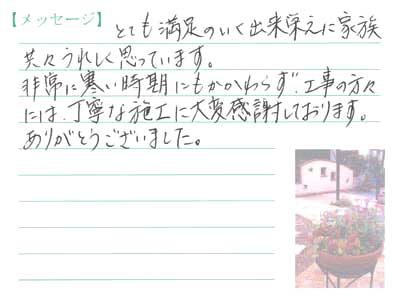 【メッセージ】とても満足のいく出来栄えに家族
共々うれしく思っています。
非常に寒い時期にもかかわらず、工事の方々
には、丁寧な施工に大変感謝しております。
ありがとうございました。